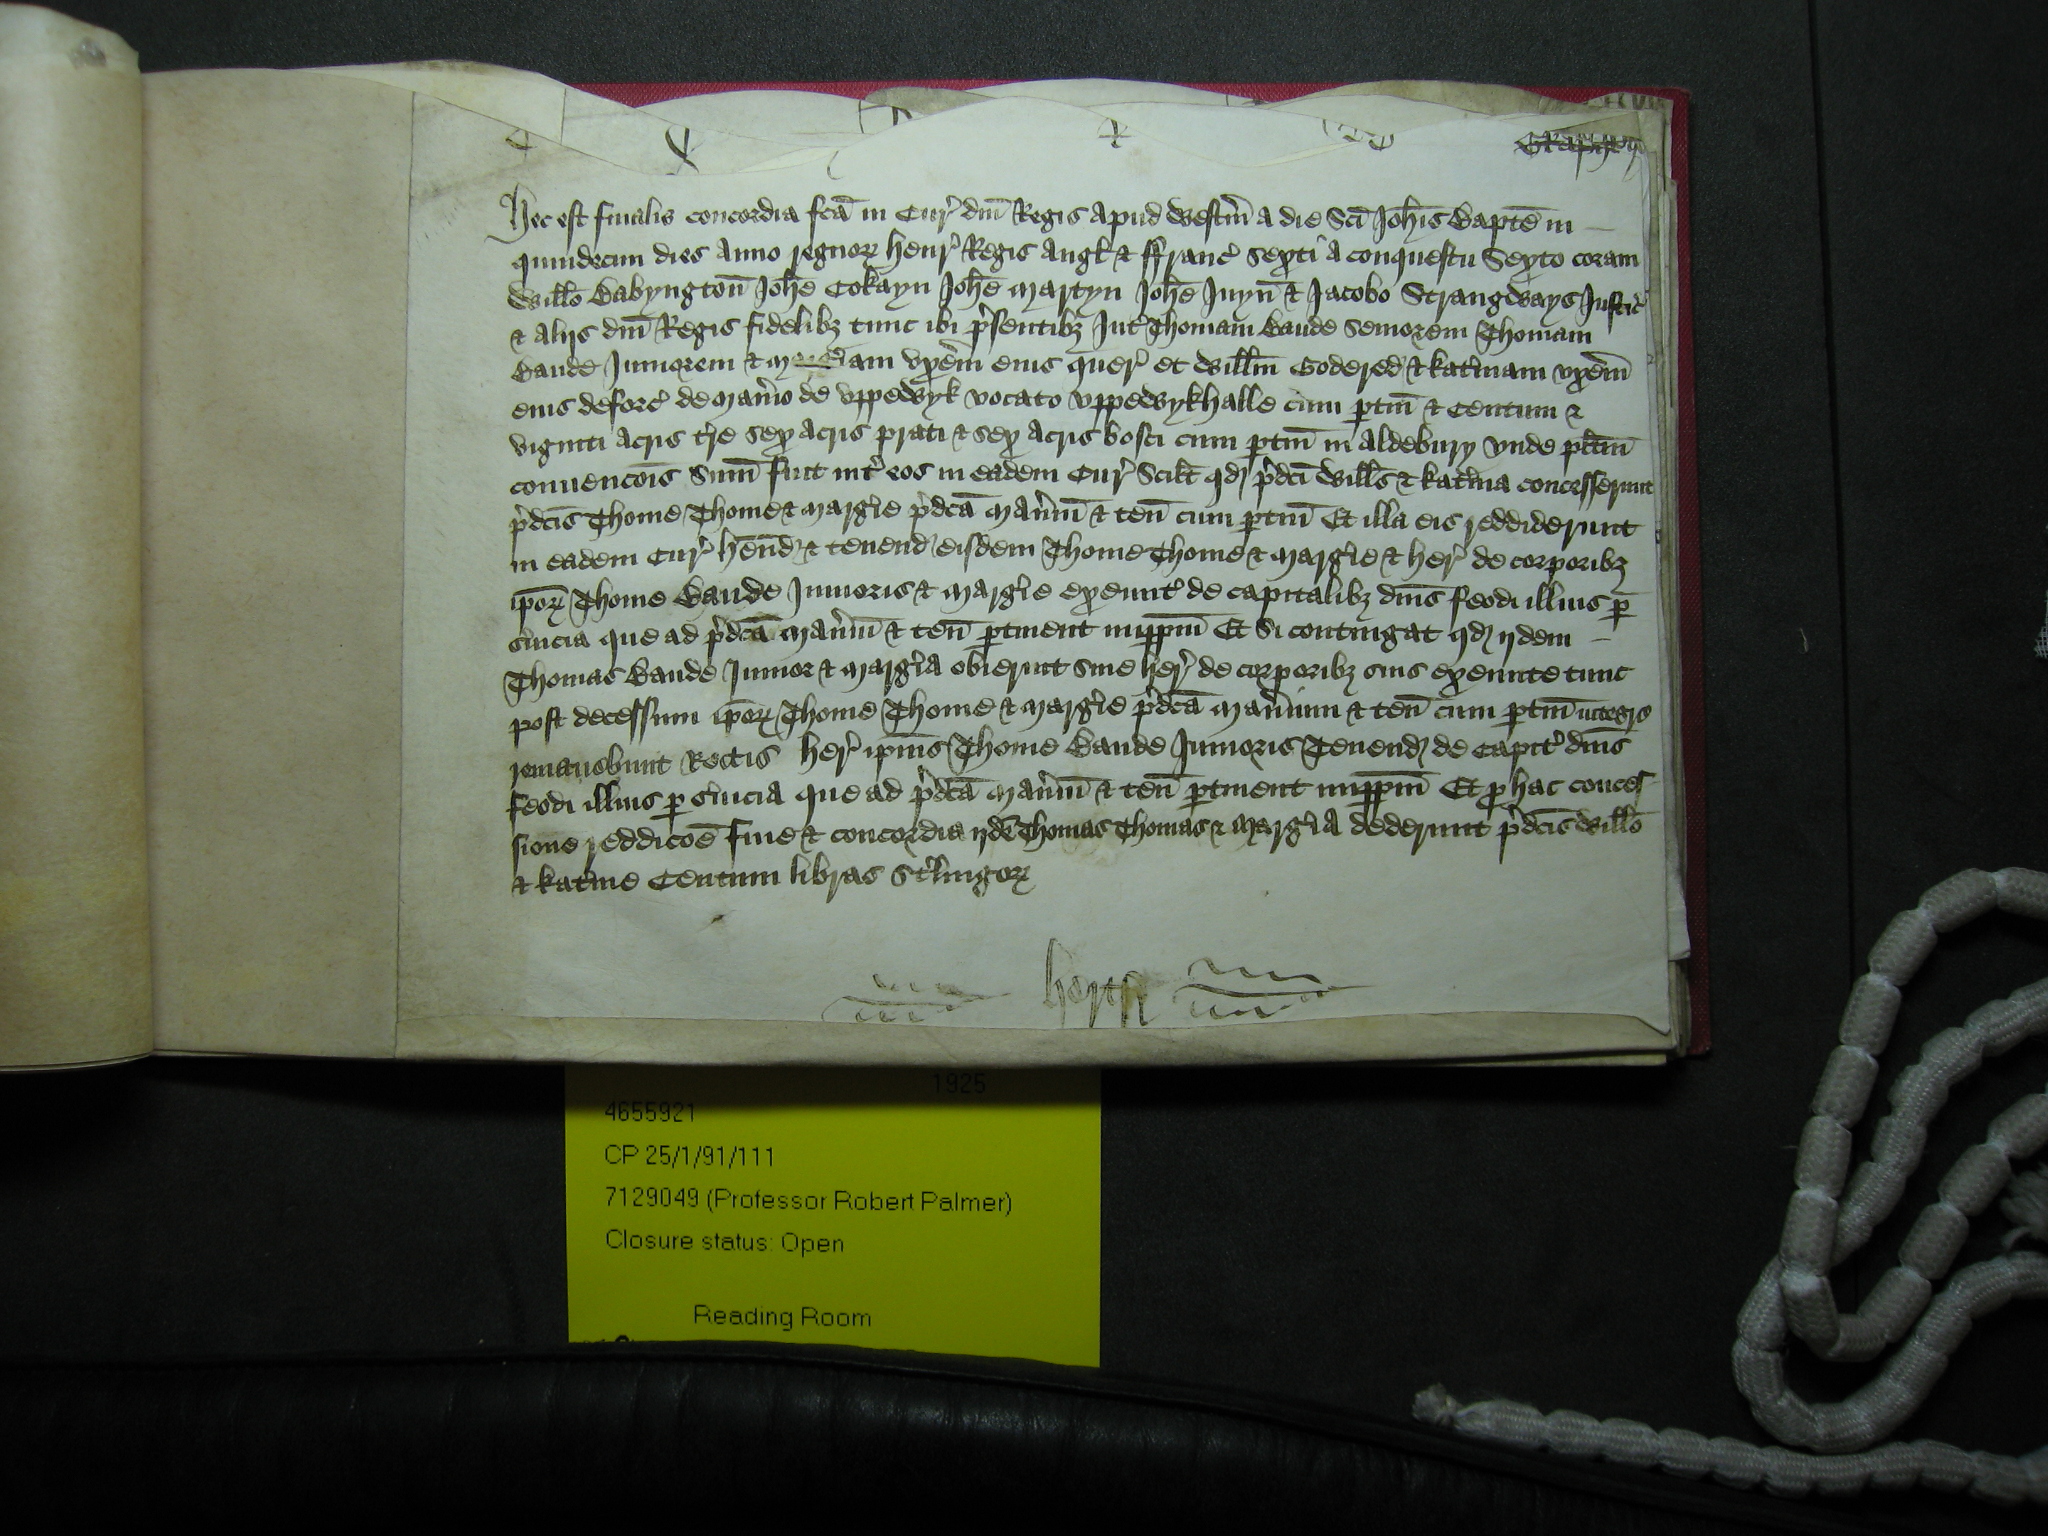 Hec est finalis concordia fc̄a in Cur̉ dn̄i Regis apud Westm̄ a die Sc̄i Joh̄is Bapt̄e in
quindecim dies Anno regnoꝝ Henr̉ Regis Angl̉ & ffranc̉ sexti a conquestu Sexto coram
Will̄o Babyngton̄ Joh̄e Cokayn Joh̄e Martyn Joh̄e Juyn̄ & Jacobo Strangways Justic̉
& alijs dn̄i Regis fidelibꝫ tunc ibi p̉sentibꝫ Int̉ Thomam Baude Seniorem Thomam
Baude Juniorem & uxem̄ eius quer̉ et Will̄m Godered & Kat̉inam uxem̄
eius deforc̉ de Man̉io de Uppewyk vocato Uppewykhalle cum ꝑtin̄ & Centum &
viginti acris t̉re sex acris prati & sex acris bosci cum ꝑtin̄ in Aldebury Unde pl̄itm̄
convenc̄ois Sum̄ fuit int̉ eos in eadem Cur̉ Scilt̄ qd̄ p̉dc̄i Will̄s & Kat̉ina concesserunt
p̉dc̄is Thome Thome & Marg̉ie p̉dc̄a Man̉iū & ten̄ cum ꝑtin̄ Et illa eis reddiderunt
in eadem Cur̉ Hend̄ & tenend̄ eisdem Thome Thome & Marg̉ie & her̉ de corporibꝫ
ip̄oꝝ Thome Baude Junioris & Marg̉ie exeunt̉ de capitalibꝫ dn̄is feodi illius ꝑ
s̉uicia que ad p̉dc̄a Man̉iū & ten̄ ꝑtinent inꝑpm̄ Et Si contingat qd̄ ijdem
Thomas Baude Junior & Marg̉ia obierint sine her̉ de corporibꝫ suis exeunte tunc
post decessum ip̄oꝝ Thome Thome & Marg̉ie p̉dc̄a Man̉ium & ten̄ cum ꝑtin̄ integre
remanebunt Rectis her̉ ip̄ius Thome Baude Junioris Tenend̄ de Capit̉ dn̄is
feodi illius ꝑ s̉uicia que ad p̉dc̄a Man̉iū & ten̄ ꝑtinent inꝑpm̄ Et ꝓ hac conces-
sione reddic̄oe fine & concordia ijdē Thomas Thomas & Marg̉ia dederunt p̉dc̄is Will̄o
& Kat̉ine Centum libras St̉lingoꝝ
Hertf
1925
4655921
CP 25/1/91/111
7129049 (Professor Robert Palmer)
Closure status: Open
Reading Room